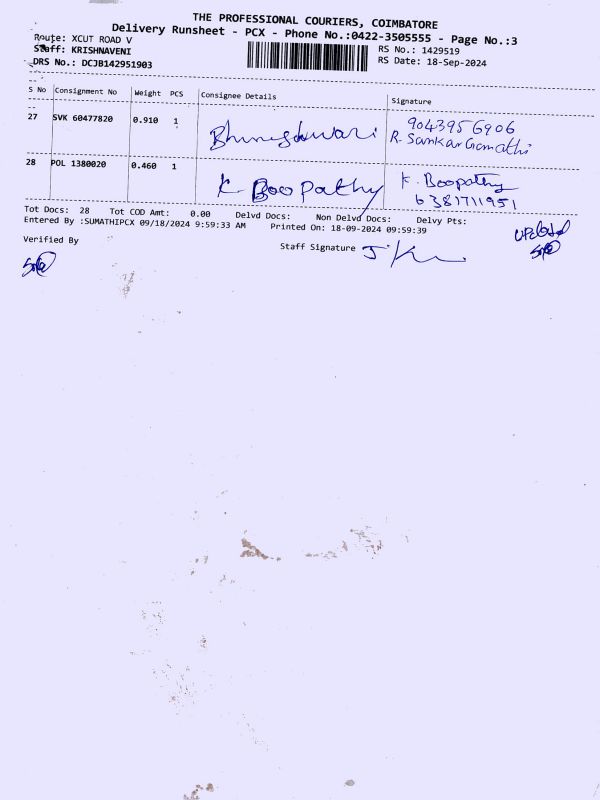 THE PROFESSIONAL COURIERS, COIMBATORE
Delivery Runsheet - PCX - Phone No.:0422-3505555 - Page No.:3
Route: XCUT ROAD V
RS No.: 1429519
Staff: KRISHNAVENI
RS Date: 18-Sep-2024
DRS No.: DCJB142951903
S No Consignment No Weight PCS Consignee Details Signature
27 SVK 60477820 0.910 1 9043956906
R. Sankar Gomathi
28 POL 1380020 0.460 1 K. Boopathy K. Boopathy
6381711951
Tot Docs: 28 Tot COD Amt: 0.00 Delvd Docs: Non Delvd Docs: Delvy Pts:
Entered By :SUMATHIPCX 09/18/2024 9:59:33 AM Printed On: 18-09-2024 09:59:39
Verified By
Staff Signature